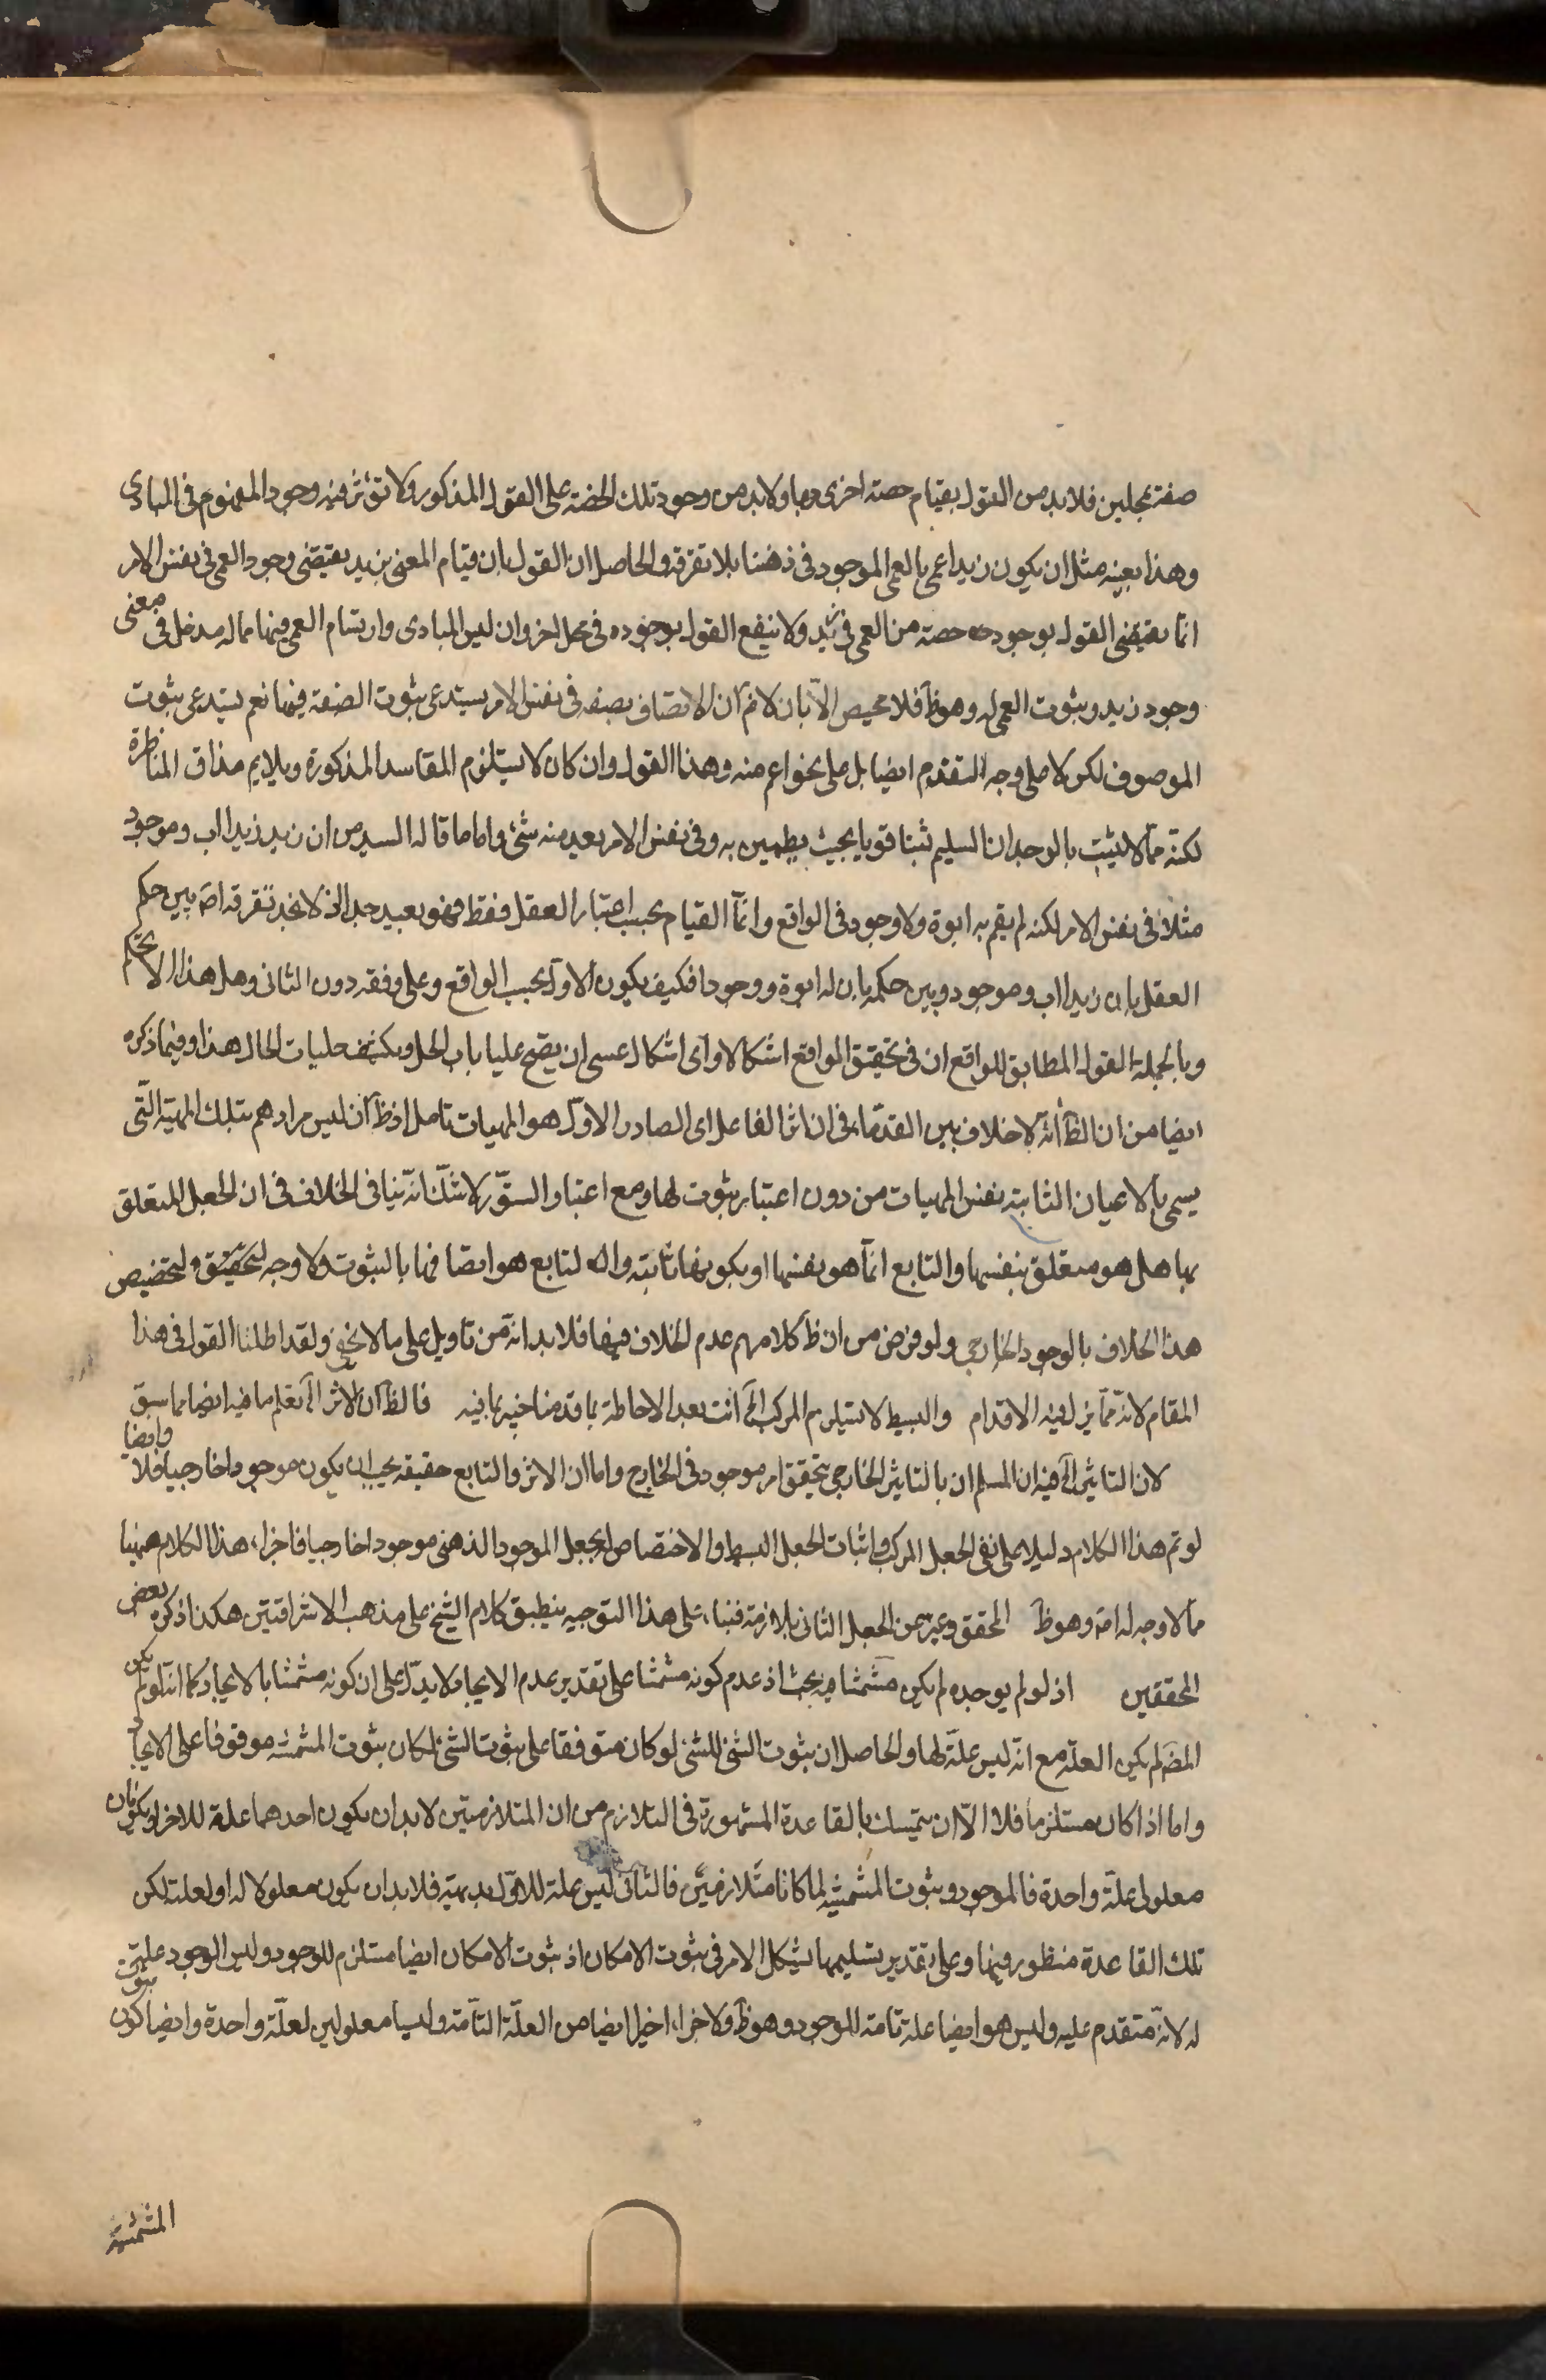 صفة بمحلين فلا بد من القول بقيام حصة اخرى بها ولا بد من وجود تلك الحصة على القول المذكور ولا تؤثر فيه وجود المفهوم فى المبادى
وهذا بعينه مثل ان يكون زيد اعمى بالعمى الموجود فى ذهننا بلا تفرقة والحاصل ان القول بان قيام المعنى بزيد يقتضى وجود العمى فى نفس الامر
انما يقتضى القول بوجود حصة من العمى فى زيد ولا ينفع القول بوجوده فى محل اخر وان ليس المبادى وارتسام العمى فيها مما له مدخل فى معنى
وجود زيد وثبوت العمى له وهو ظ فلا محيص الا بان لانم ان الاتصاف بصفة فى نفس الامر يستدعى ثبوت الصفة فيها نعم يستدعى ثبوت
الموصوف لكن لا على وجه التقدم ايضا بل على نحو اعم منه وهذا القول وان كان لا يستلزم المفاسد المذكورة ويلايم مذاق المناظرة
لكنه مما لا يثبت بالوجدان السليم ثبتا قويا بحيث يطمين به وفى نفس الامر بعد منه شئ واما ما قاله السيد من ان زيد زيدا اب وموجود
مثلا فى نفس الامر لكنه لم يقم به ابوة ولا وجود فى الواقع وانما القيام بحسب اعتبار العقل فقط فهو بعيد جدا اذ لا نجد تفرقة اصّ بين حكم
العقل بان زيدا اب وموجود وبين حكمه بان له ابوة ووجودا فكيف يكون الاول بحسب الواقع وعلى وفقه دون الثانى وهل هذا الا تحكم
وبالجملة القول المطابق للواقع ان فى تحقيق الواقع اشكالا واى اشكال عسى ان يفتح علينا باب الحل ويكشف جليات الحال هذا وفيما ذكره
ايضا من ان الظ انه لا خلاف بين القدماء فى ان اثر الفاعل اى الصادر الاول هو المهيات تامل اذ ظ ان ليس مرادهم بتلك المهية التى
يسمى بالاعيان الثابتة نفس المهيات من دون اعتبار ثبوت لها ومع اعتبار الثبوت لا شك انه ينافى الخلاف فى ان الجعل المتعلق
بها هل هو متعلق بنفسها والتابع انما هو نفسها او بكونها ثابتة والتابع هو اتصافها بالثبوت ولا وجه لتحقيق ولتخصيص
هذا الخلاف بالوجود الخارجى ولو فرض من ان ظ كلامهم عدم الخلاف فيها فلا بد انه من تاويل على ما لا يخفى ولقد اطلنا القول فى هذا
المقام لانه مما يزل فيه الاقدام والبسيط لا يستلزم المركب الخ انت بعد الاحاطة بما قدمنا خبير بما فيه فالظ ان الاثر الخ تعلم ما فيه ايضا مما سبق
وايضا
لان التاثير الخ فيه ان المسلم ان بالتاثير الخارجى يتحقق امر موجود فى الخارج واما ان الاثر والتابع حقيقة يجب ان يكون موجودا خارجيا فلا
لو تم هذا الكلام دليلا على نفى الجعل المركب واثبات الجعل البسيط والاختصاص بجعل الموجود الذهنى موجودا خارجيا فاجراء هذا الكلام ههنا
مما لا وجه له اصّ وهو ظ المحقق وغيره عن الجعل الثانى بلازمه فبناء على هذا التوجيه ينطبق كلام الشيخ على مذهب الاشراقيين هكذا ذكره بعض
المحققين اذ لو لم يوجده لم يكن مشمشا فيه بحث اذ عدم كونه مشمشا على تقدير عدم الايجاد لا يدل على ان كونه مشمشا بالايجاد كما انه لو لم يكن
المضَ لم يكن العلة مع انه ليس علة لها والحاصل ان ثبوت الشئ للشئ لو كان متوقفا على ثبوت الشئ لكان ثبوت المشمشية موقوفا على الايجاد
واما اذا كان مستلزما فلا الا ان يتمسك بالقاعدة المشهورة فى التلازم من ان المتلازمين لا بد ان يكون احدهما علة للاخر او يكونان
معلولى علة واحدة فالموجود وثبوت المشمشية لما كانا متلازمين فالثانى ليس علة للاول بديهة فلا بد ان يكون معلولا له او لعلته لكن
تلك القاعدة منظور فيها وعلى تقدير تسليمها يشكل الامر فى ثبوت الامكان اذ ثبوت الامكان ايضا مستلزم للوجود وليس الوجود علة
له لانه متقدم عليه وليس هو ايضا علة تامة للوجود وهو ظ ولا جزاء اخيرا ايضا من العلة التامة وليسا معلولين لعلة واحدة وايضا كون ثبوت
المشمشية